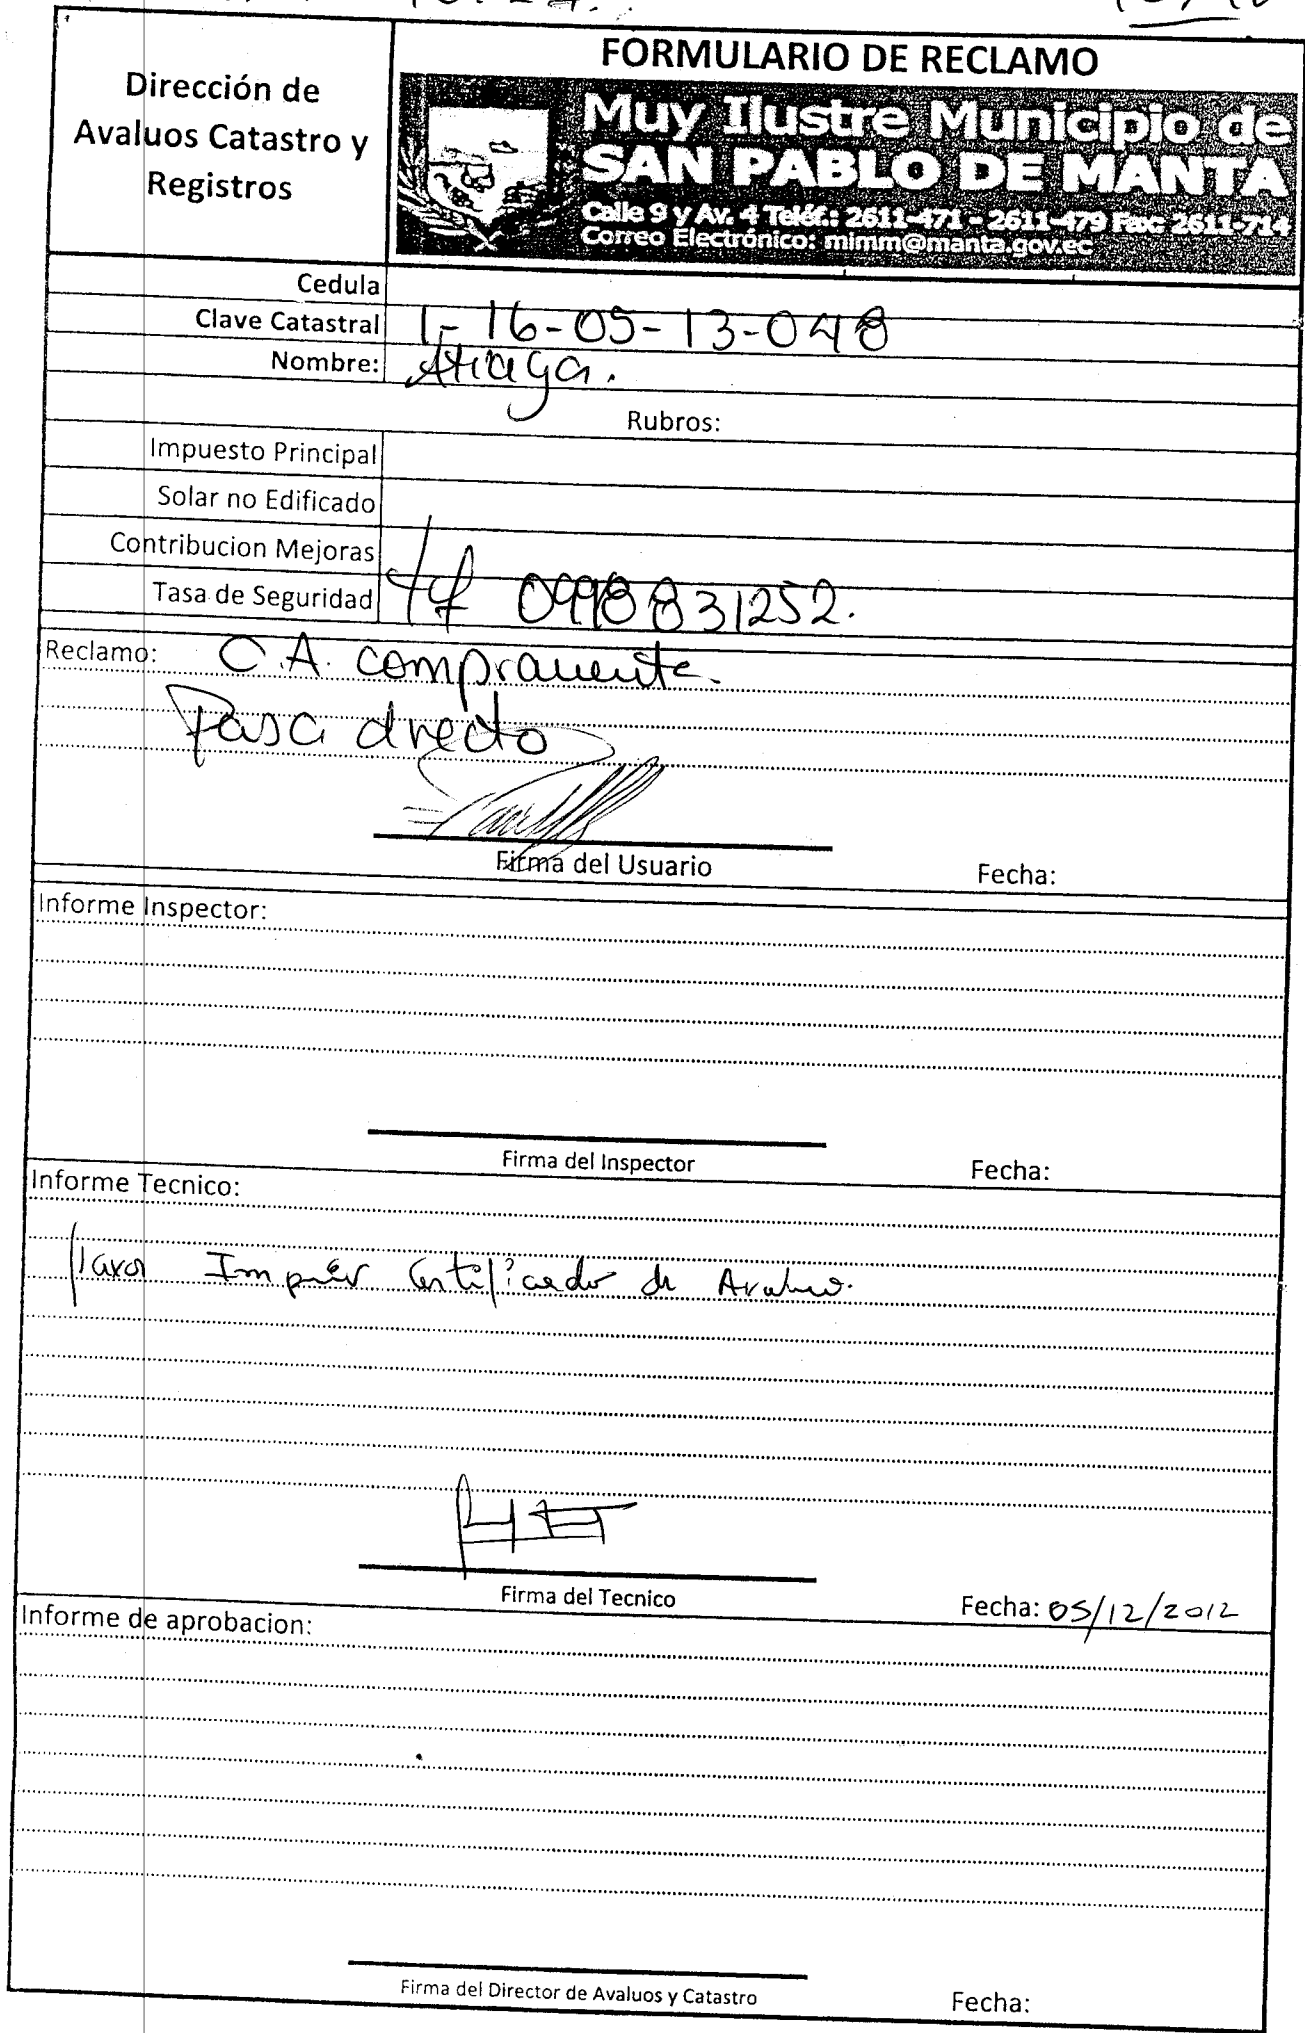 FORMULARIO DE RECLAMO
Dirección de
Avaluos Catastro y
Registros
Muy Ilustre Municipio de
SAN PABLO DE MANTA
Calle 9 y Av. 4 Teléf.: 2611-471 - 2611-479 Fax: 2611-714
Correo Electrónico: mimm@manta.gov.ec
Cedula
Clave Catastral 1-16-05-13-048
Nombre:
Rubros:
Impuesto Principal
Solar no Edificado
Contribucion Mejoras
Tasa de Seguridad 0998831252.
Reclamo: C.A. compraventa.
Pasa directo
Firma del Usuario Fecha:
Informe Inspector:
Firma del Inspector Fecha:
Informe Tecnico:
Imprimir Certificado de Avaluo.
Firma del Tecnico Fecha: 05/12/2012
Informe de aprobacion:
Firma del Director de Avaluos y Catastro Fecha: